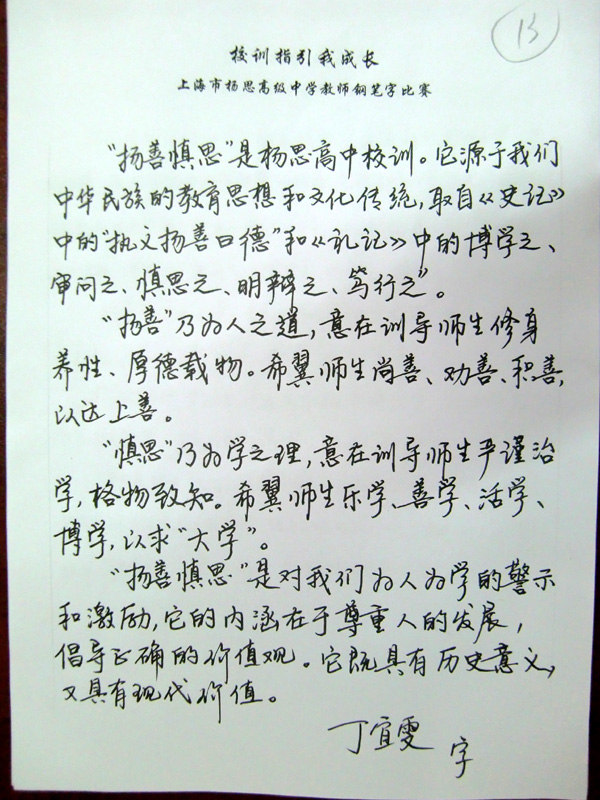 13
校训指引我成长
上海市杨思高级中学教师钢笔字比赛
“扬善慎思”是杨思高中校训。它源于我们
中华民族的教育思想和文化传统,取自《史记》
中的“执文扬善曰德”和《礼记》中的博学之、
审问之、慎思之、明辩之、笃行之”。
“扬善”乃为人之道,意在训导师生修身
养性、厚德载物。希翼师生尚善、劝善、积善,
以达上善。
“慎思”乃为学之理,意在训导师生严谨治
学,格物致知。希翼师生乐学、善学、活学、
博学,以求“大学”。
“扬善慎思”是对我们为人为学的警示
和激励,它的内涵在于尊重人的发展,
倡导正确的价值观。它既具有历史意义,
又具有现代价值。
丁宜雯 字